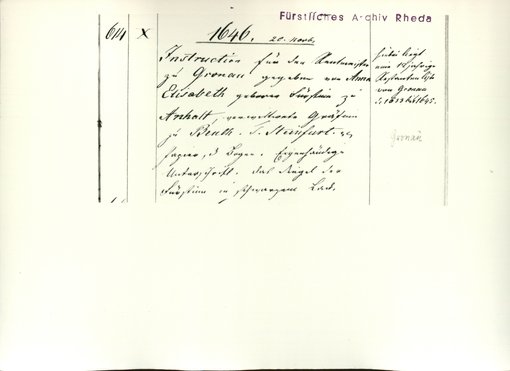 Fürstliches Archiv Rheda
614 X 1646.
20. Novb.
Instruction für den Rentmeister
zu Gronau gegeben von Anna
Elisabeth geborne Fürstin zu
Anhalt, vermählte Gräfin
zu Benth. T. Steinfurt.
Papier, Bogen. Eigenhändige
Unterschrift. Das Siegel der
Fürstin in schwarzem Lack.
hiebei liegt
eine jährige
von Gronau
Gronau